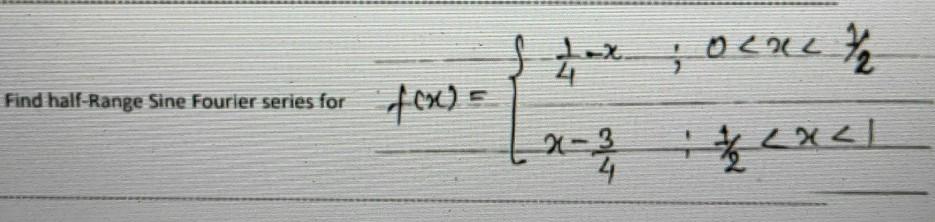 Find half-Range Sine Fourier series for f(x) = { 1/4 - x ; 0 < x < 1/2
x - 3/4 ; 1/2 < x < 1